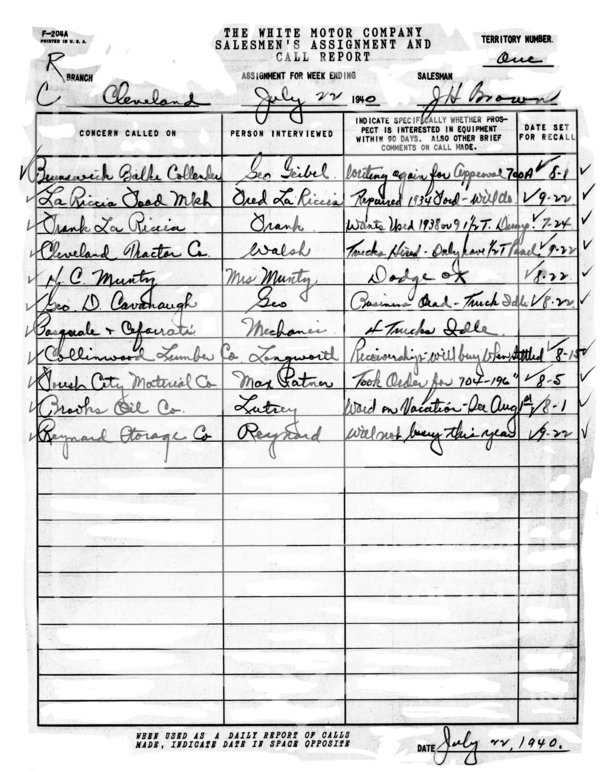 F-204A
PRINTED IN U. S. A.
THE WHITE MOTOR COMPANY
SALESMEN'S ASSIGNMENT AND
CALL REPORT
TERRITORY NUMBER
One
R
C
BRANCH
Cleveland
ASSIGNMENT FOR WEEK ENDING
July 22 1940
SALESMAN
J H Brown
CONCERN CALLED ON PERSON INTERVIEWED INDICATE SPECIFICALLY WHETHER PROSPECT IS INTERESTED IN EQUIPMENT WITHIN 90 DAYS. ALSO OTHER BRIEF COMMENTS ON CALL MADE. DATE SET FOR RECALL
Brunswick Balke Collender Geo Geibel Writing again for Approval 700A 8-1
La Riccia Food Mkh Fred La Riccia Repaired 1934 Ford - Will do. 9-22
Frank La Riccia Frank Wants Used 1938 or 9 1½ T. Dump. 7-24
Cleveland Tractor Co. Walsh Trucks Hired - Only have ½ T Panel 9-22
H. C. Munty Mrs Munty Dodge OK 8-22
Geo. D. Cavanaugh Geo Business Dead - Truck Idle 8-22
Pasquale + Mechanic 4 Trucks Idle.
Collinwood Lumber Co Longworth Receivership - will buy when settled 8-15
City Material Co Max Ratner Took Order for 704-196" 8-5
Brooks Oil Co. Ward on Vacation - See Aug 1st 8-1
Reynard Storage Co Reynard Will not buy this year 9-22
WHEN USED AS A DAILY REPORT OF CALLS
MADE, INDICATE DATE IN SPACE OPPOSITE
DATE July 22, 1940.